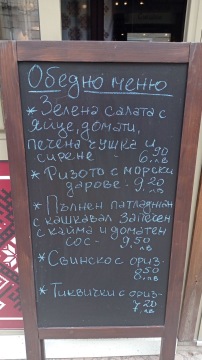 Обедно меню
* Зелена салата с
яйце, домати,
печена чушка и
сирене - 6.90 лв
* Ризото с морски
дарове - 9.20 лв
* Пълнен патладжан
с кашкавал запечен
с кайма и доматен
сос - 9.50 лв
* Свинско с ориз-
8.50 лв
* Тиквички с ориз-
7.20 лв